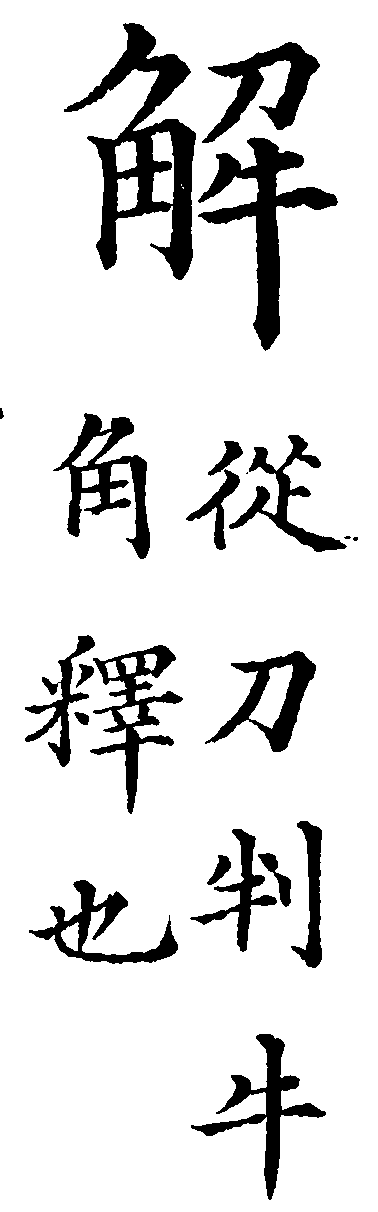 解
從刀判牛
角釋也